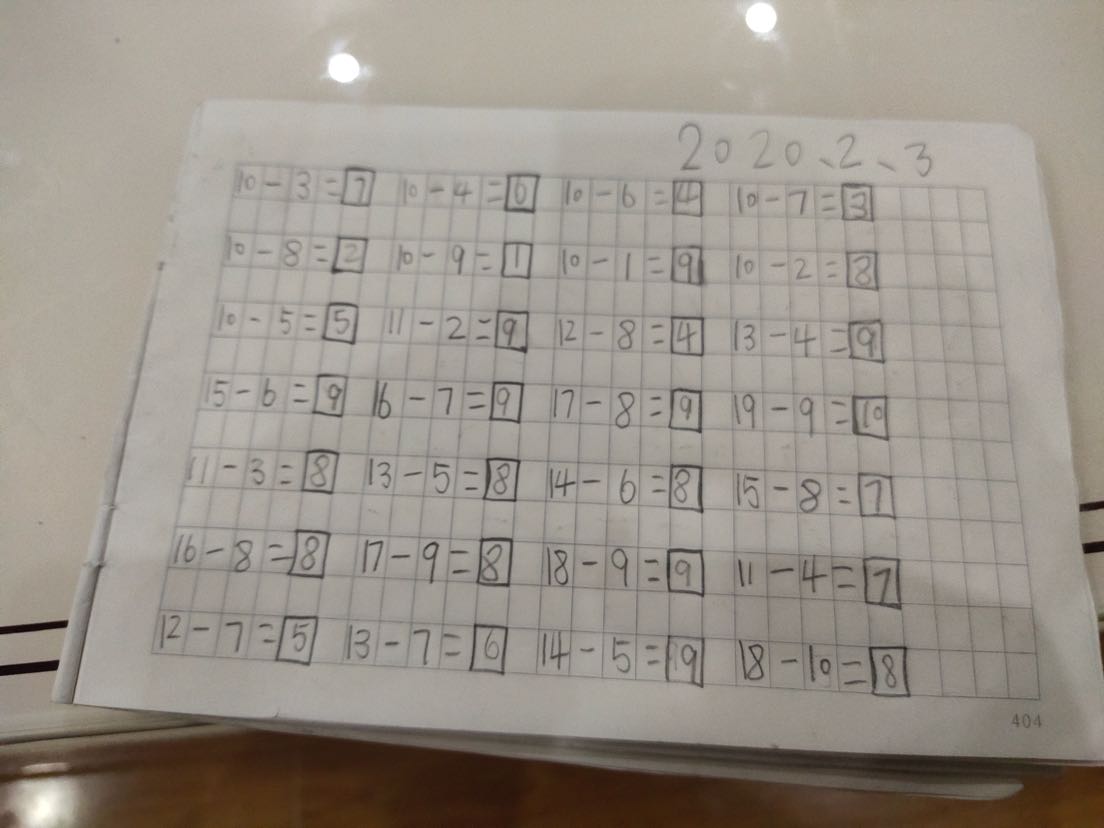 2020、2、3
10-3=7 10-4=6 10-6=4 10-7=3
10-8=2 10-9=1 10-1=9 10-2=8
10-5=5 11-2=9 12-8=4 13-4=9
15-6=9 16-7=9 17-8=9 19-9=10
11-3=8 13-5=8 14-6=8 15-8=7
16-8=8 17-9=8 18-9=9 11-4=7
12-7=5 13-7=6 14-5=9 18-10=8
404